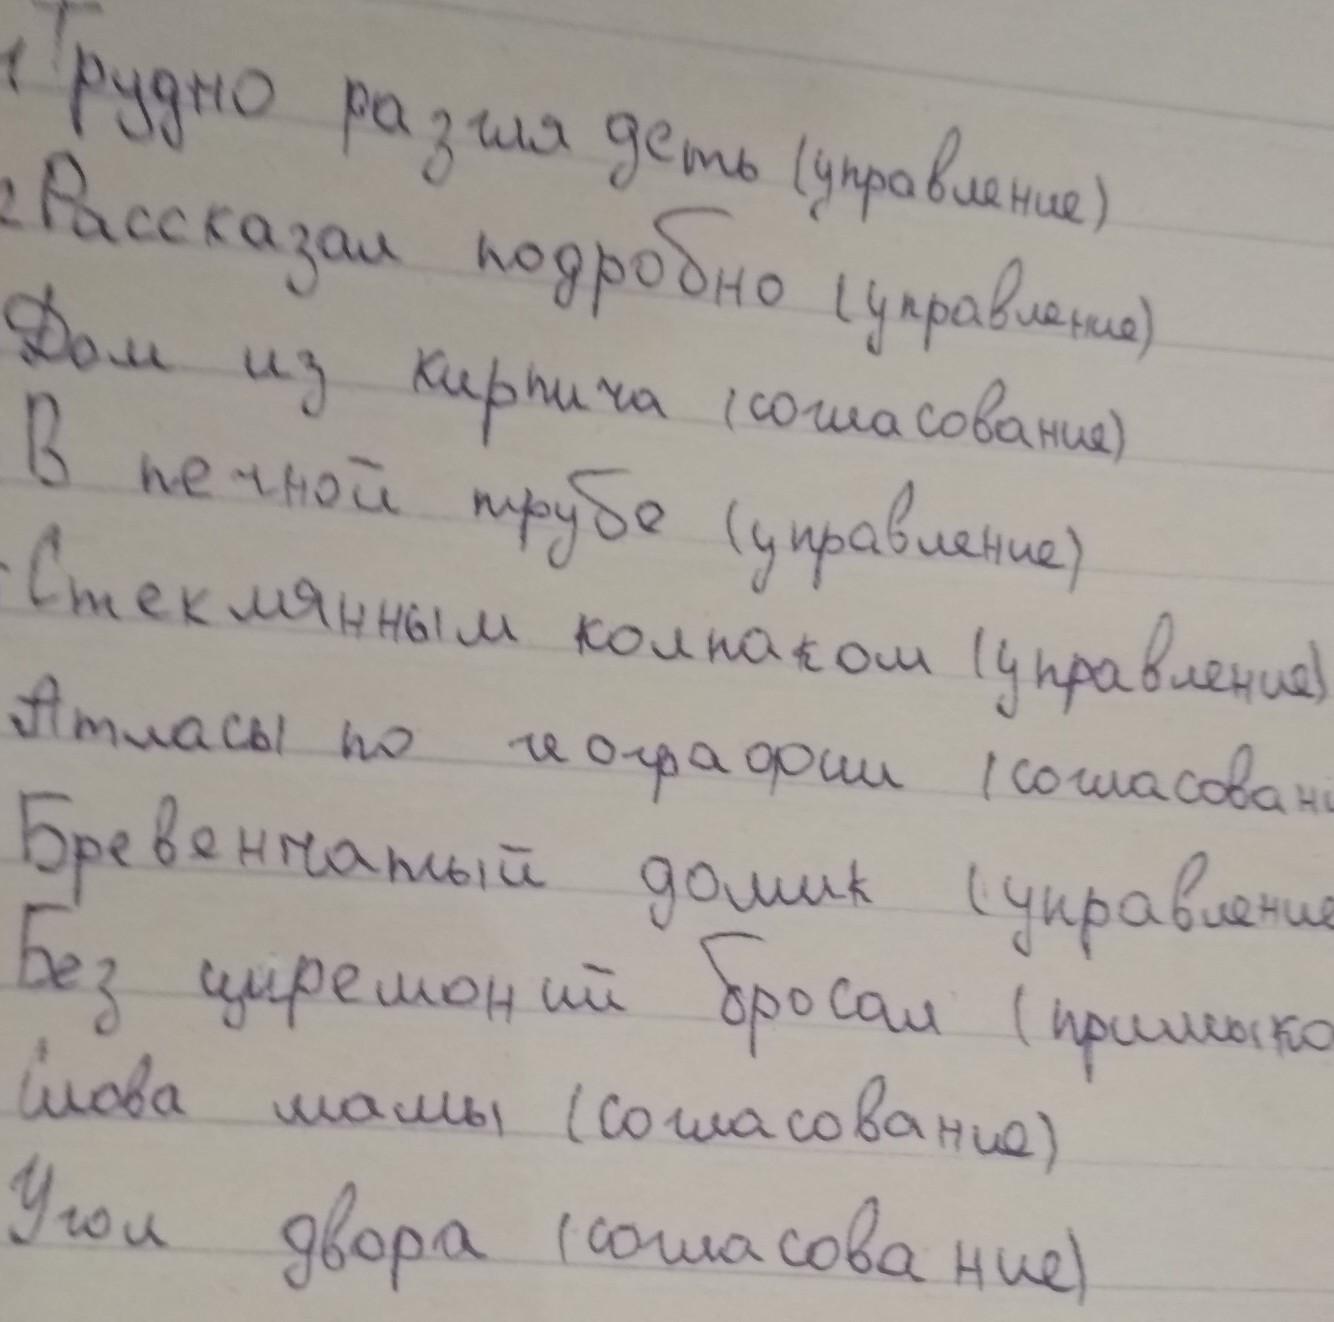 1 Трудно разглядеть (управление)
2 Рассказал подробно (управление)
Дом из кирпича (согласование)
В печной трубе (управление)
Стеклянным колпаком (управление)
Атласы по географии (согласовани
Бревенчатый домик (управление
Без циремоний бросал (примыка
Слова мамы (согласование)
Угол двора (согласование)